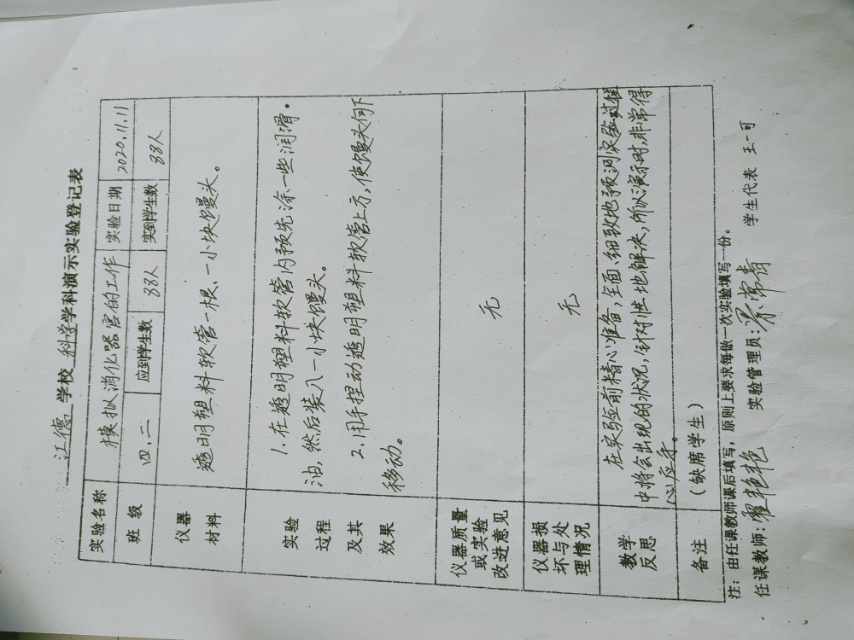 江德学校 科学学科演示实验登记表
实验名称 模拟消化器官的工作 实验日期 2020.11.11
班级 四.二 应到学生数 38人 实到学生数 38人
仪器 材料 透明塑料软管一根、一小块馒头。
实验 过程 及其 效果
1.在透明塑料软管内预先涂一些润滑
油,然后装入一小块馒头。
2.用手捏动透明塑料软管上方,使馒头向下
移动。
仪器质量 或实验 改进意见 无
仪器损 坏与处 理情况 无
教学 反思
在实验前精心准备,全面、细致地预测实验过程
中将会出现的状况,针对性地解决,所以演示时,非常得
心应手。
备注 (缺席学生)
注:由任课教师课后填写,原则上要求每做一次实验填写一份。
任课教师: 艳艳 实验管理员: 常青 学生代表 王一可